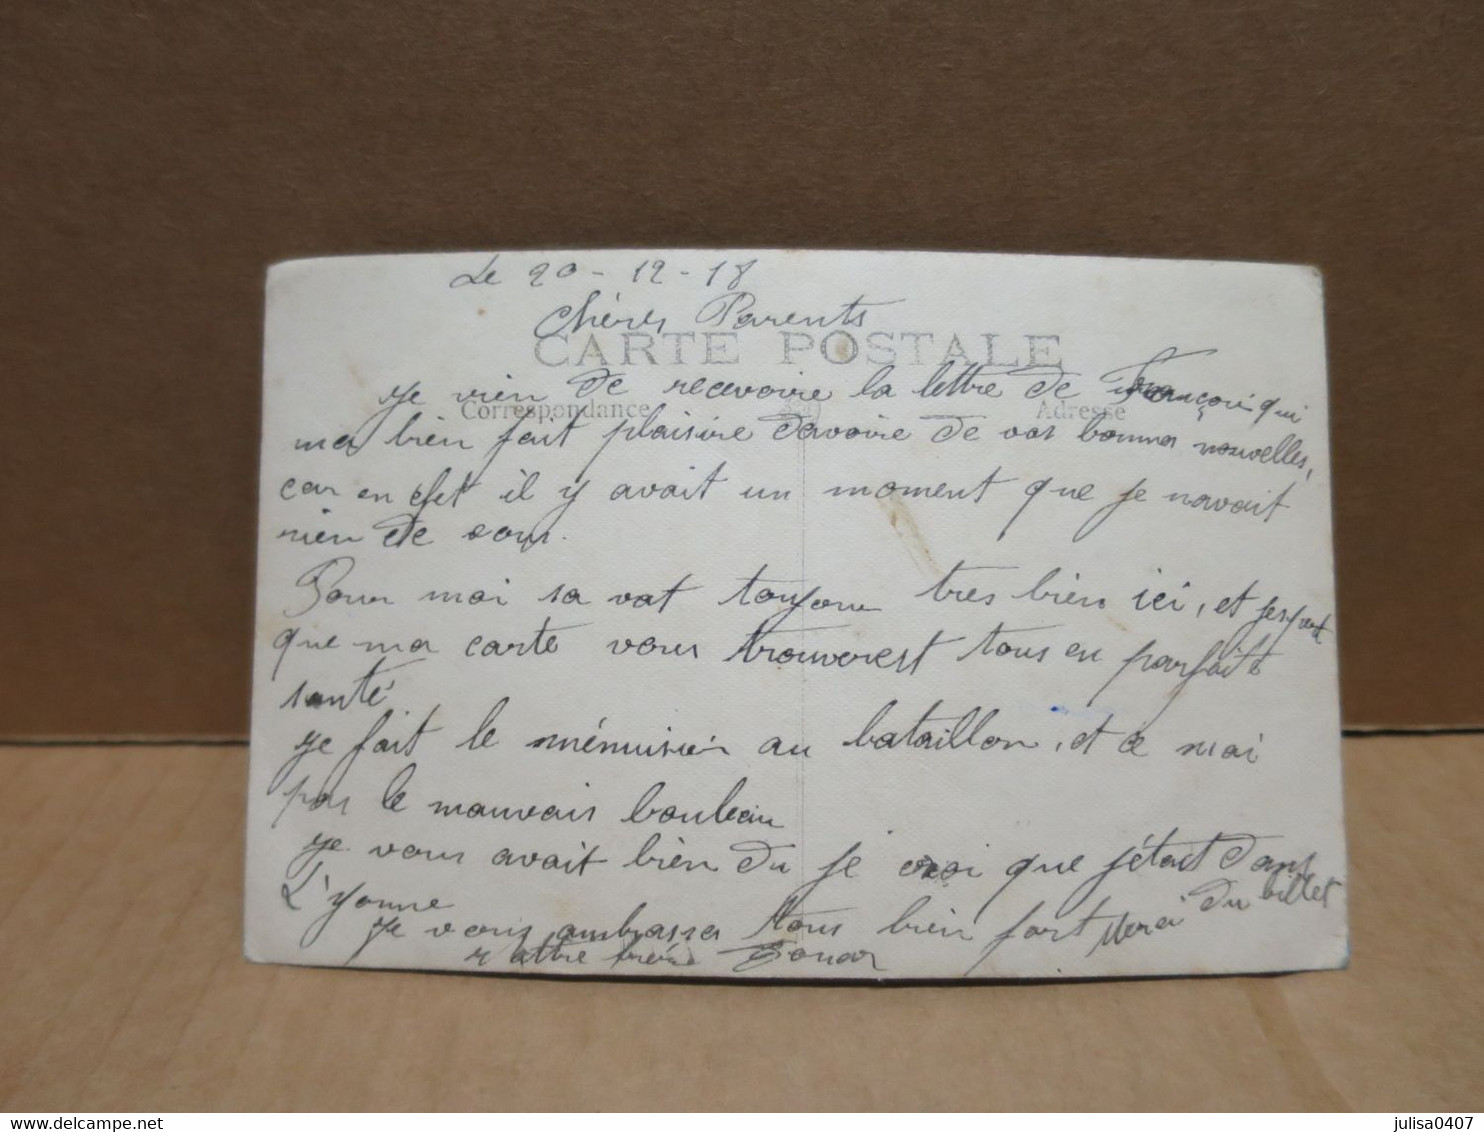 Le 20 - 12 - 18
Chères Parents
CARTE POSTALE
Je vien de recevoire la lettre de Françoi qui
Correspondance Adresse
ma bien fait plaisire davoire de vos bonnes nouvelles,
car en efet il y avait un moment que je navait
rien de vous.
Pour moi sa vat toujour tres bien ici, et jespert
que ma carte vous trouverest tous en parfaite
santé
Je fait le ménuisier au bataillon, et ce nai
pas le mauvais bouleau
Je vous avait bien du je croi que jétait dans
L'yonne
Je vous ambrasse tous bien fort Merci du billet
vottre
julisa0407